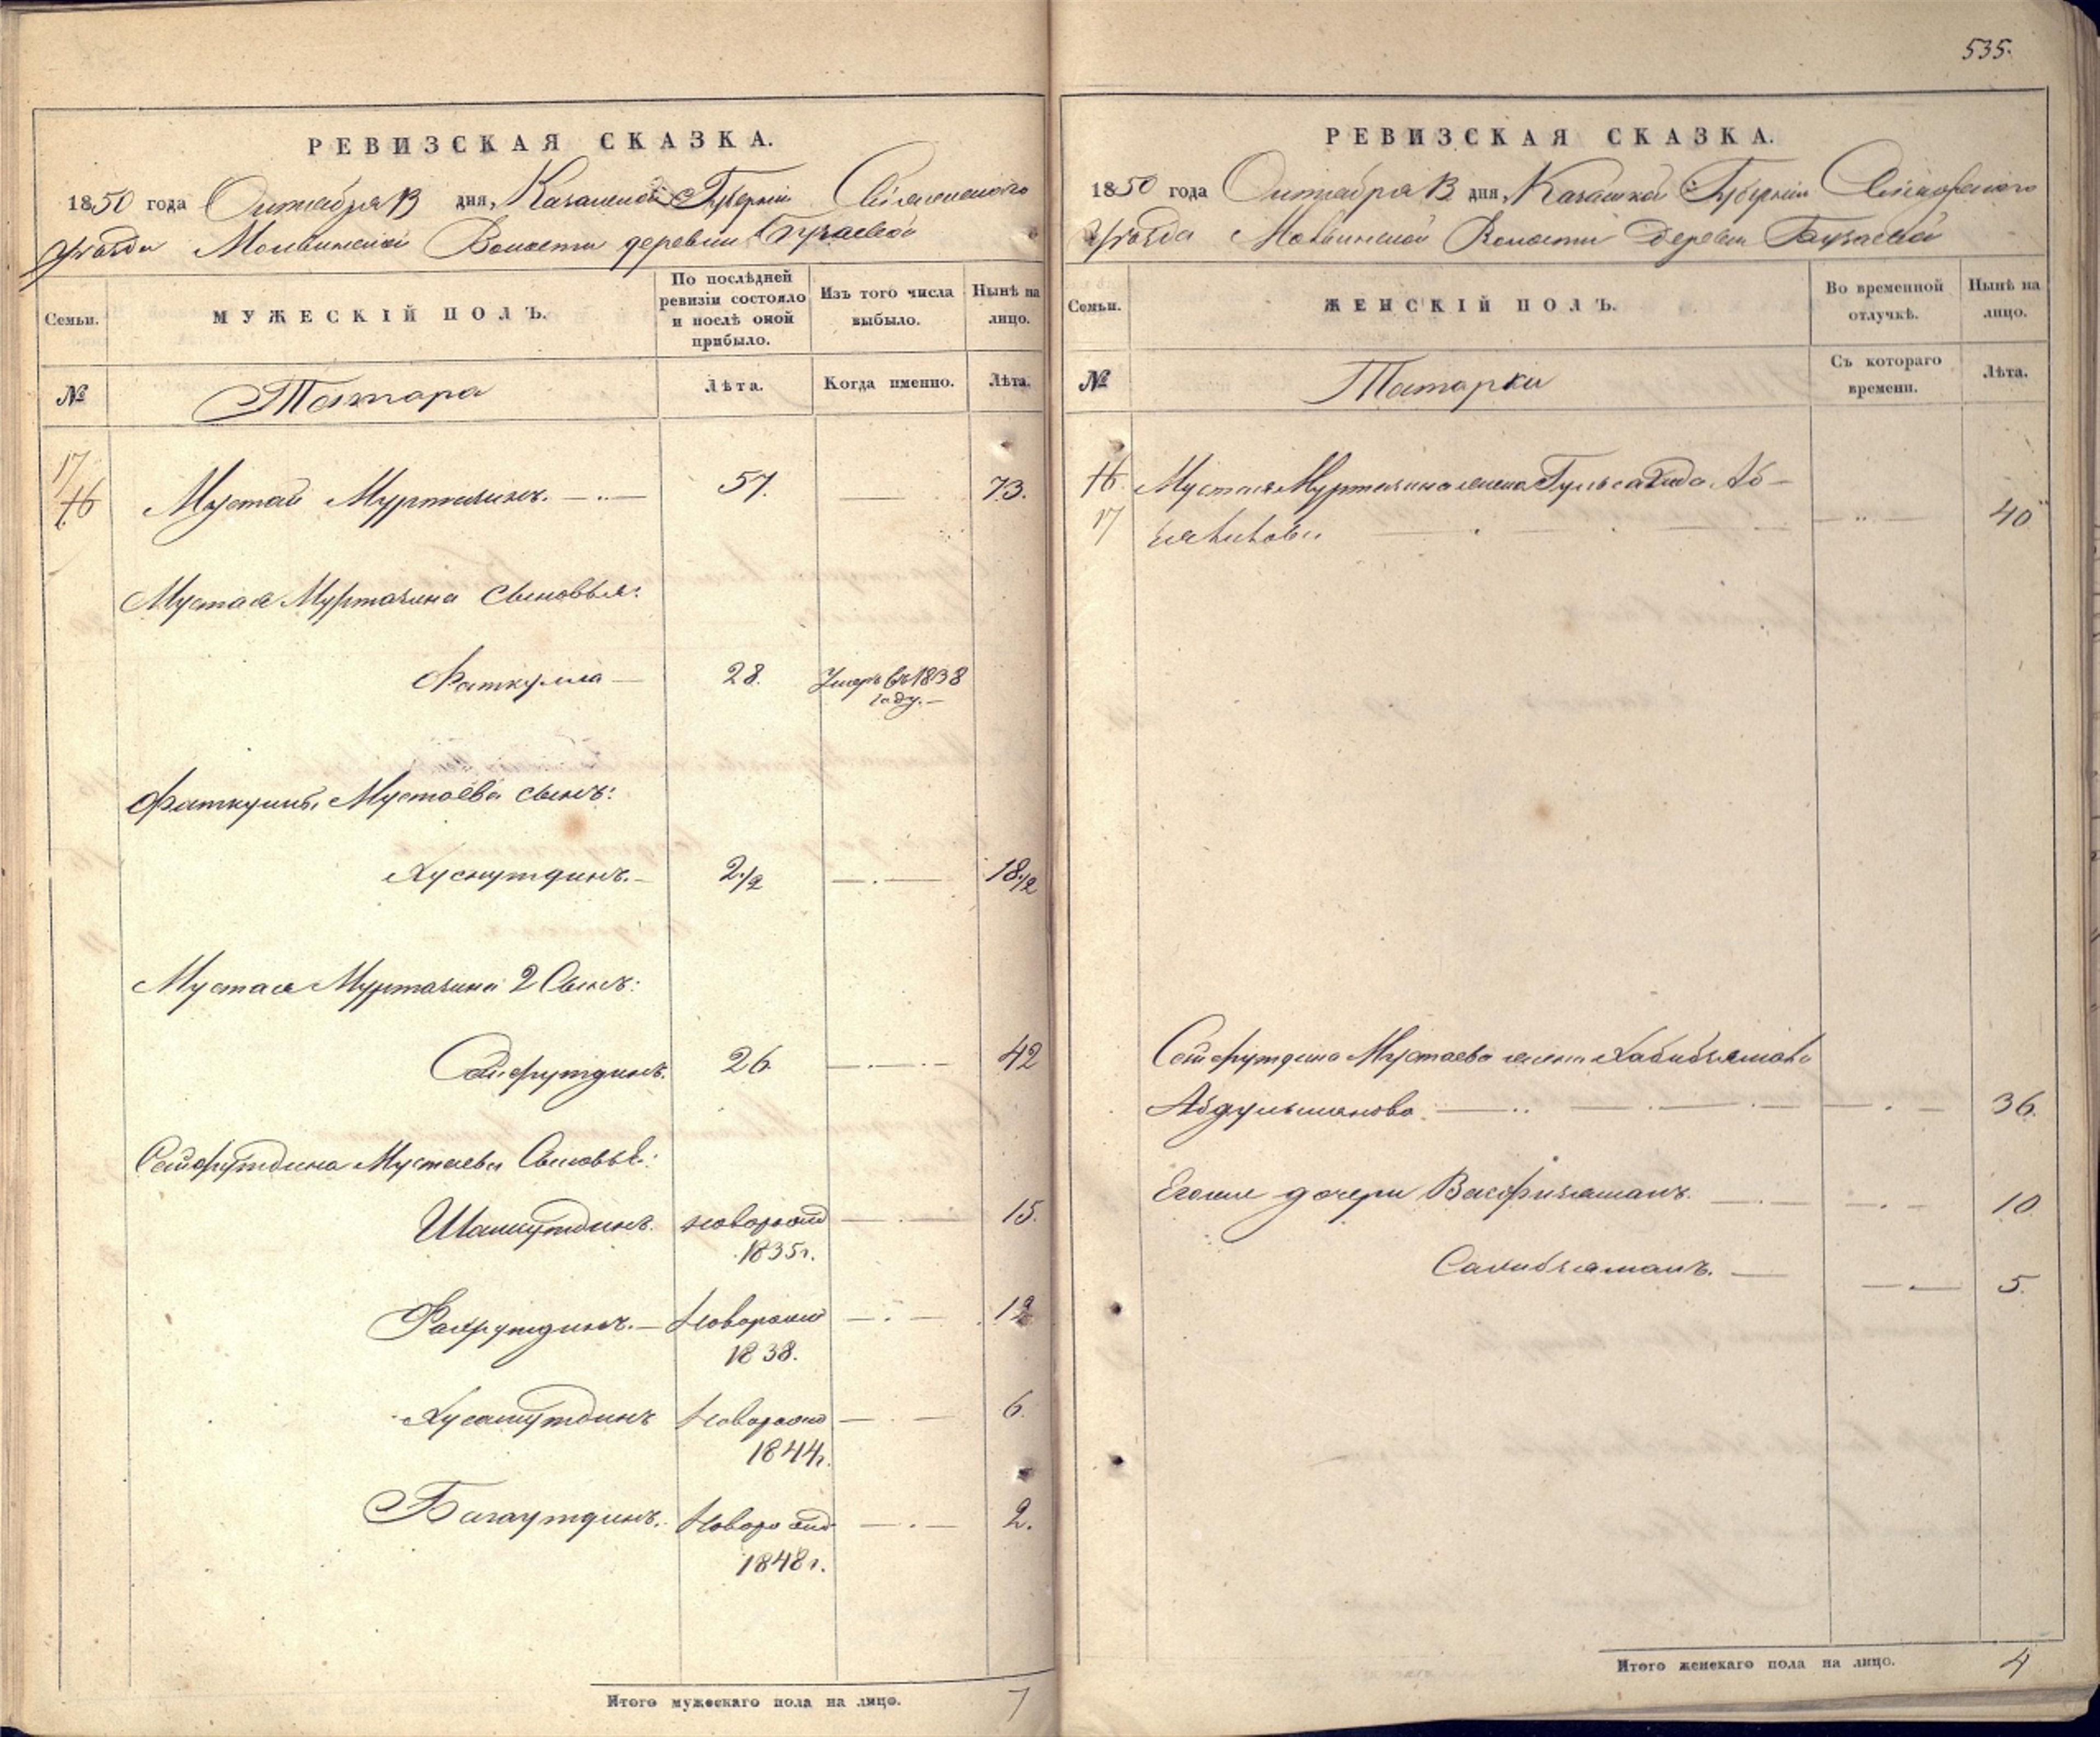 535.
РЕВИЗСКАЯ СКАЗКА.
1850 года Октября 13 дня, Казанской Губерніи Свіяжскаго
уѣзда Молвинской Волости деревни Бузаевой
Семьи.
МУЖЕСКІЙ ПОЛЪ.
По послѣдней ревизіи состояло и послѣ оной прибыло.
Изъ того числа выбыло.
Нынѣ на лицо.
№
Татара
Лѣта.
Когда именно.
Лѣта.
17
16 Мустай Муртазинъ. 57. 73.
Мустая Муртазина сыновья:
Фаткулла 28. Умеръ въ 1838
году.
Фаткуллы Мустаева сынъ:
Хуснутдинъ. 2 1/2 18 1/2
Мустая Муртазина 2 Сынъ:
Сейфутдинъ. 26 42
Сейфутдина Мустаева Сыновья:
Шамсутдинъ. новорожд 15.
1835 г.
Фахрутдинъ. Новорожд 12
1838.
Хусамутдинъ Новорожд 6.
1844 г.
Багаутдинъ. Новорожд 2.
1848 г.
Итого мужескаго пола на лицо. 7
РЕВИЗСКАЯ СКАЗКА.
1850 года Октября 13 дня, Казанской Губерніи Свіяжскаго
Уѣзда Молвинской Волости Деревни Бузаевой
Семьи.
ЖЕНСКІЙ ПОЛЪ.
Во временной отлучкѣ.
Нынѣ на лицо.
№
Татарки
Съ котораго времени.
Лѣта.
16. Мустая Муртазина жена
17 40
Сейфутдина Мустаева жена
36.
Его же дочери 10
5.
Итого женскаго пола на лицо. 4